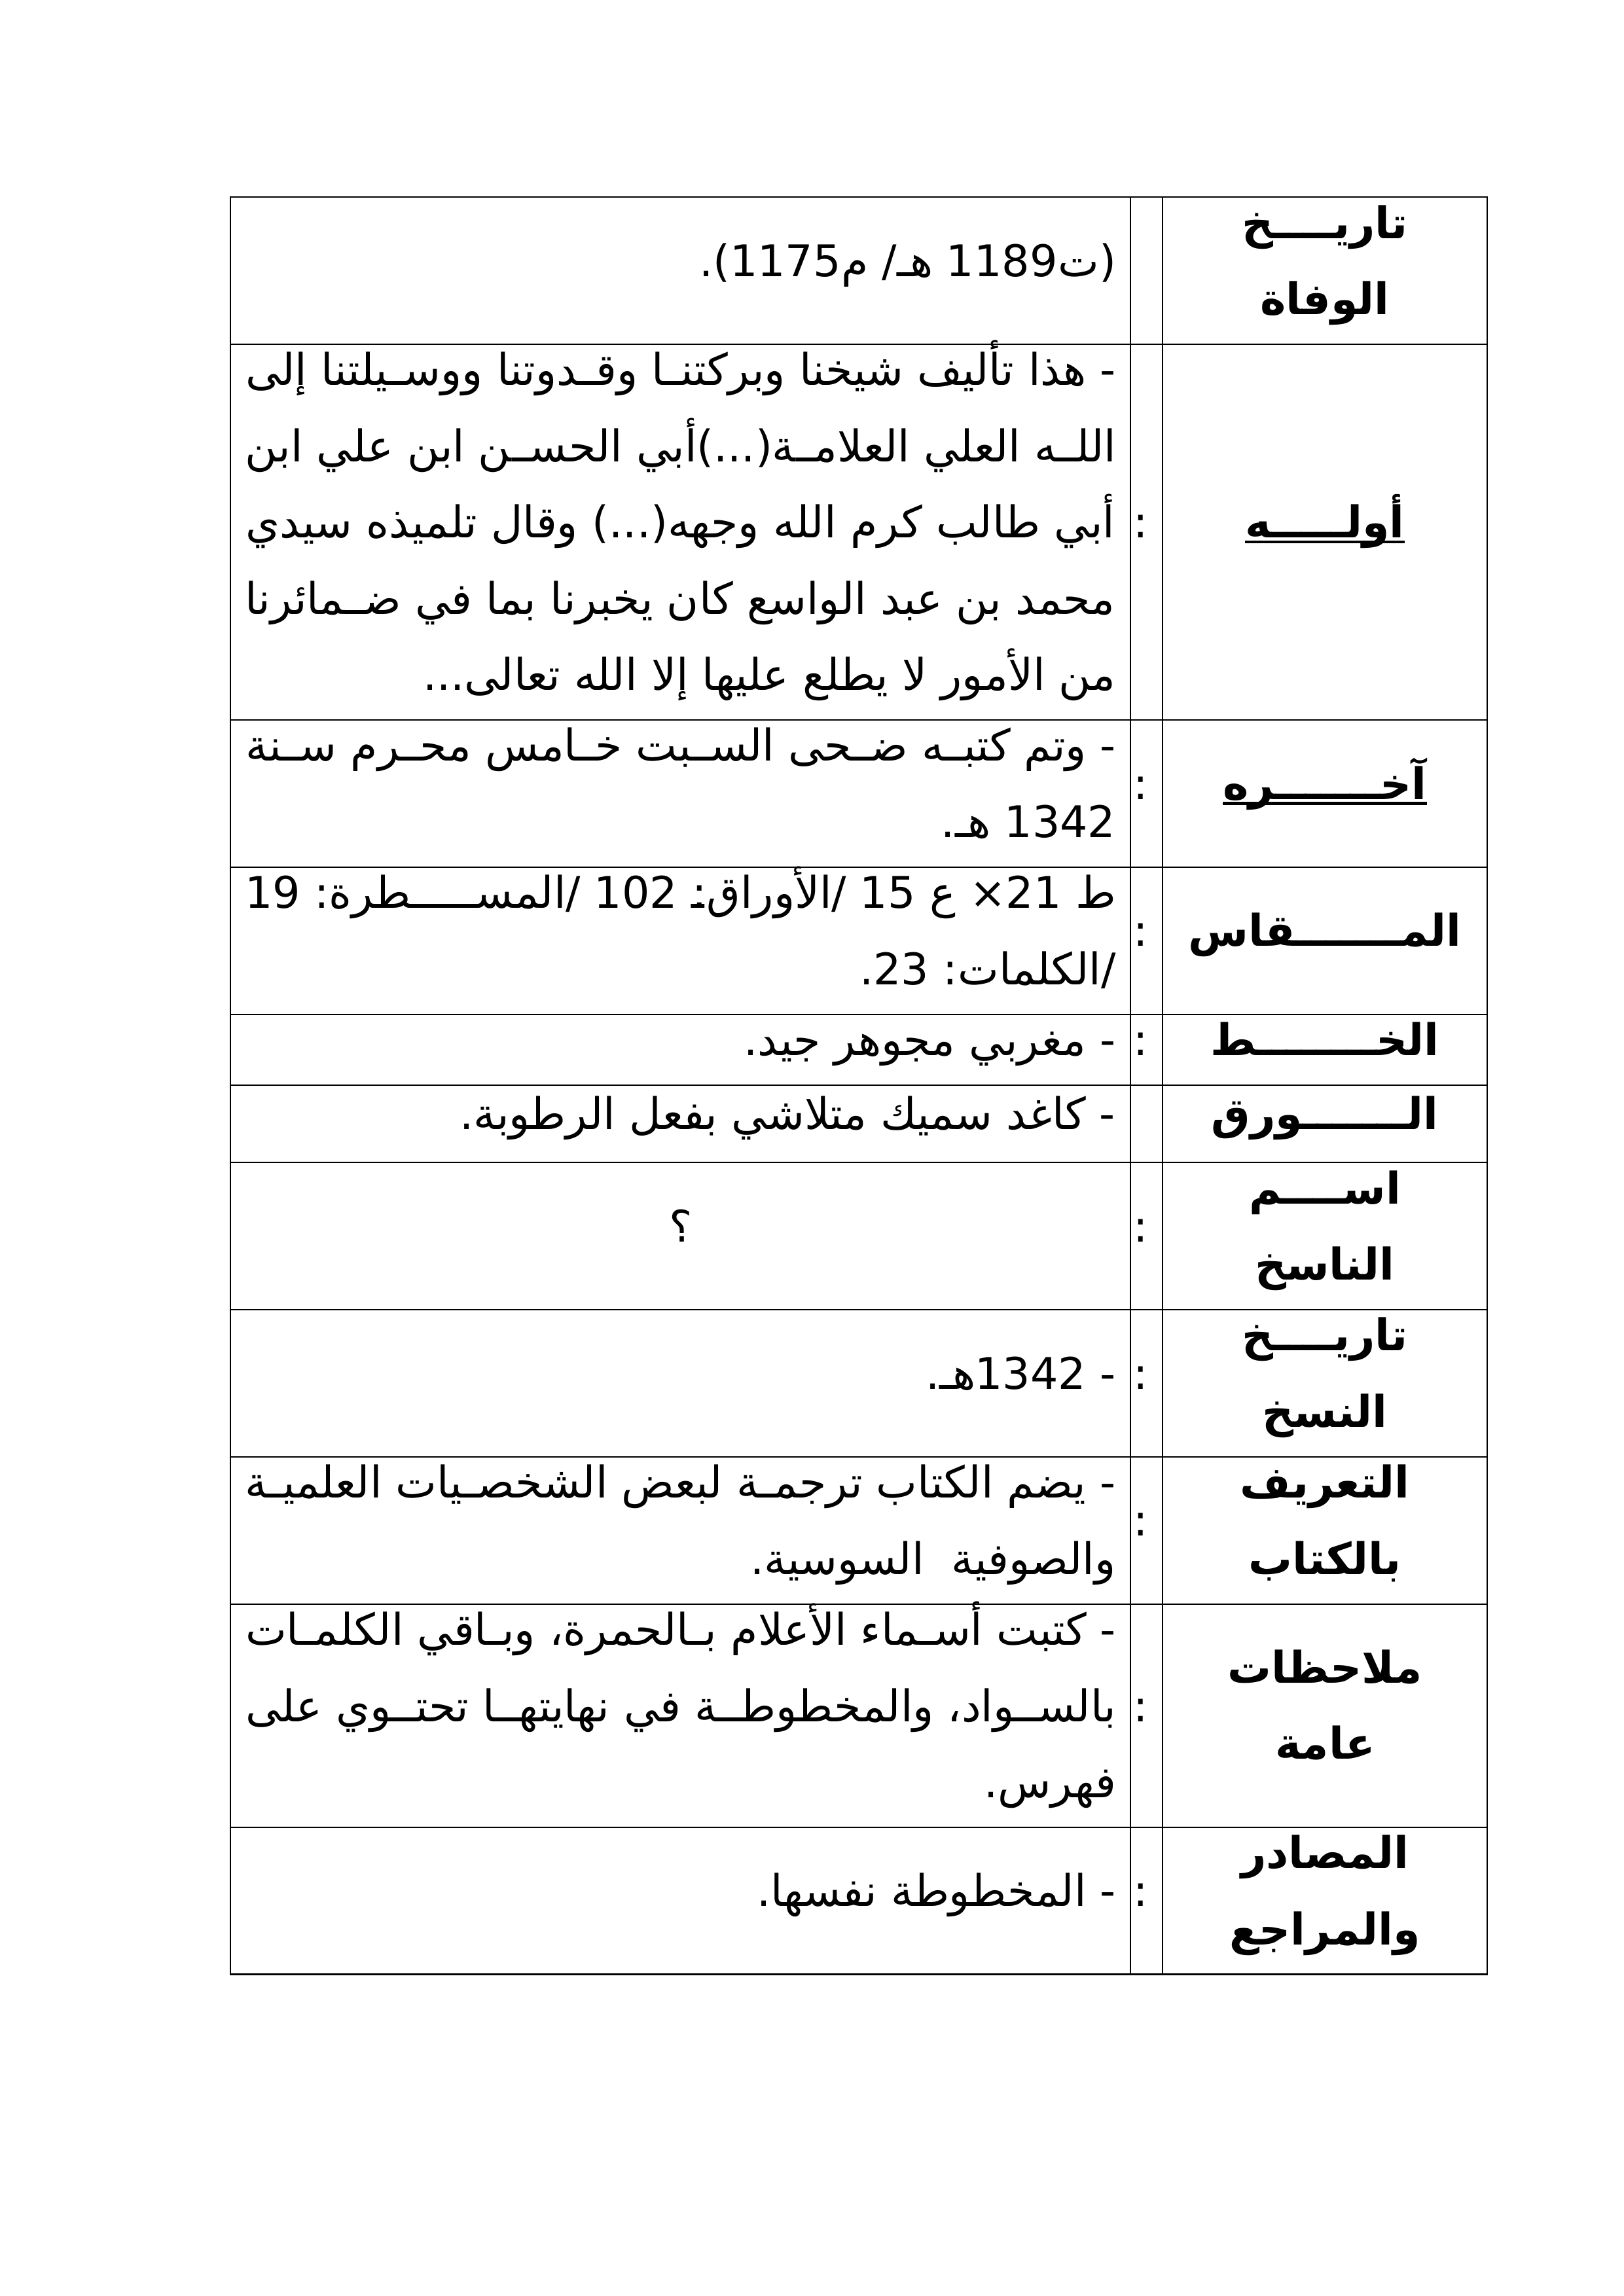 تاريــــخ
الوفاة
(ت1189 هـ/ م1175).
أولـــــه
:
- هذا تأليف شيخنا وبركتنــا وقــدوتنا ووسـيلتنا إلى
اللــه العلي العلامــة(...)أبي الحســن ابن علي ابن
أبي طالب كرم الله وجهه(...) وقال تلميذه سيدي
محمد بن عبد الواسع كان يخبرنا بما في ضــمائرنا
من الأمور لا يطلع عليها إلا الله تعالى...
آخـــــــره
:
- وتم كتبــه ضــحى الســبت خــامس محــرم ســنة
1342 هـ.
المـــــــقاس
:
ط 21× ع 15 /الأوراق: 102 /المســـــطرة: 19
/الكلمات: 23.
الخــــــــط
:
- مغربي مجوهر جيد.
الـــــــورق
- كاغد سميك متلاشي بفعل الرطوبة.
اســــم
الناسخ
:
؟
تاريــــخ
النسخ
:
- 1342هـ.
التعريف
بالكتاب
:
- يضم الكتاب ترجمـة لبعض الشخصـيات العلميـة
والصوفية السوسية.
ملاحظات
عامة
:
- كتبت أسـماء الأعلام بـالحمرة، وبـاقي الكلمـات
بالســواد، والمخطوطــة في نهايتهــا تحتــوي على
فهرس.
المصادر
والمراجع
:
- المخطوطة نفسها.